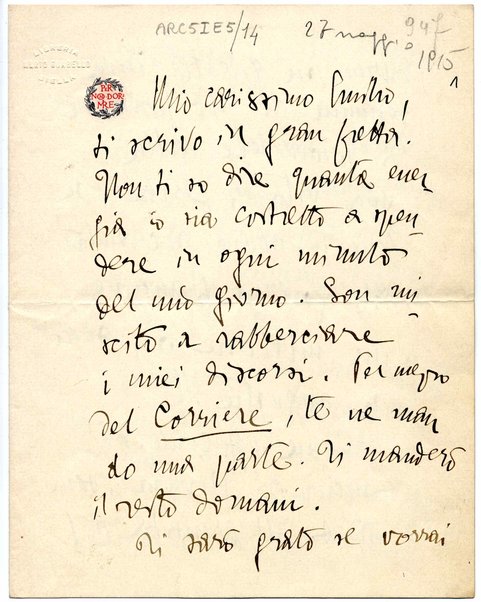 ARC5IE5/14 27 maggio 947
1915
PER
NON DOR
MIRE
Mio carissimo Emilio,
ti scrivo in gran fretta.
Non ti so dire quanta ener-
gia io sia costretto a spen-
dere in ogni minuto
del mio giorno. Son riu
scito a rabberciare
i miei discorsi. Per mezzo
del Corriere, te ne man
do una parte. Ti manderò
il resto domani.
Ti sarò grato se vorrai